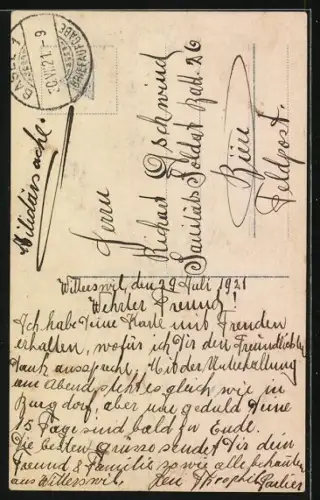 BASEL 1
BRIEFAUFGABE
30.VII.21.-9
Militärsache.
Herrn
Richard Gschwind
Sanitäts-Soldat Batt. 26
Büren
Feldpost.
Witterswil, den 29 Juli 1921
Wehrter Freund!
Ich habe deine Karte mit Freuden
erhalten, wofür ich Dir den Freundlichsten
Dank ausspreche. Mit der Unterhaltung
am Abend steht es gleich wie in
Burgdorf, aber nur geduld deine
15 Tage sind bald zu Ende.
Die besten Grüsse sendet dir dein
Freund & Familie sowie alle bekannten
aus Witterswil.